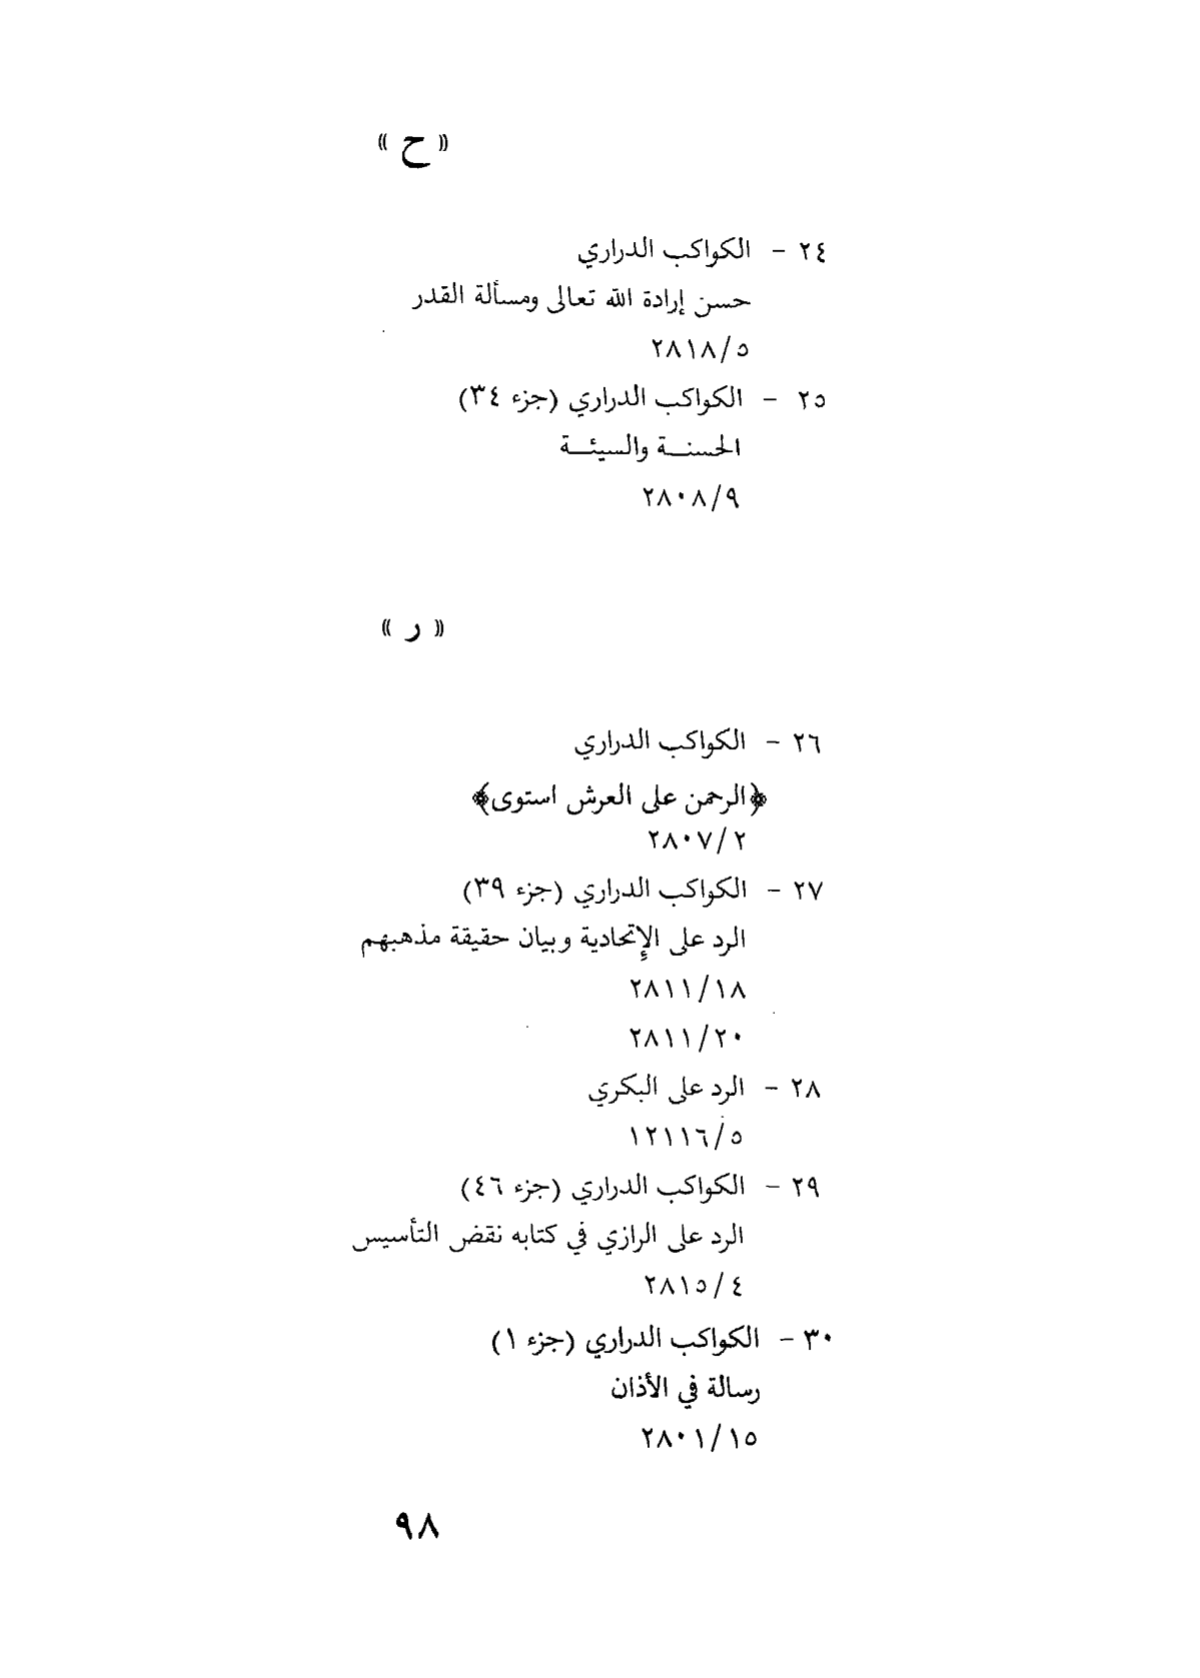 « ح »
٢٤ - الكواكب الدراري
حسن إرادة الله تعالى ومسألة القدر
٢٨١٨/٥
٢٥ - الكواكب الدراري (جزء ٣٤)
الحسنــة والسيئــة
٢٨٠٨/٩
« ر »
٢٦ - الكواكب الدراري
﴿الرحمن على العرش استوى﴾
٢٨٠٧/٢
٢٧ - الكواكب الدراري (جزء ٣٩)
الرد على الإتحادية وبيان حقيقة مذهبهم
٢٨١١/١٨
٢٨١١/٢٠
٢٨ - الرد على البكري
١٢١١٦/٥
٢٩ - الكواكب الدراري (جزء ٤٦)
الرد على الرازي في كتابه نقض التأسيس
٢٨١٥/٤
٣٠ - الكواكب الدراري (جزء ١)
رسالة في الأذان
٢٨٠١/١٥
٩٨